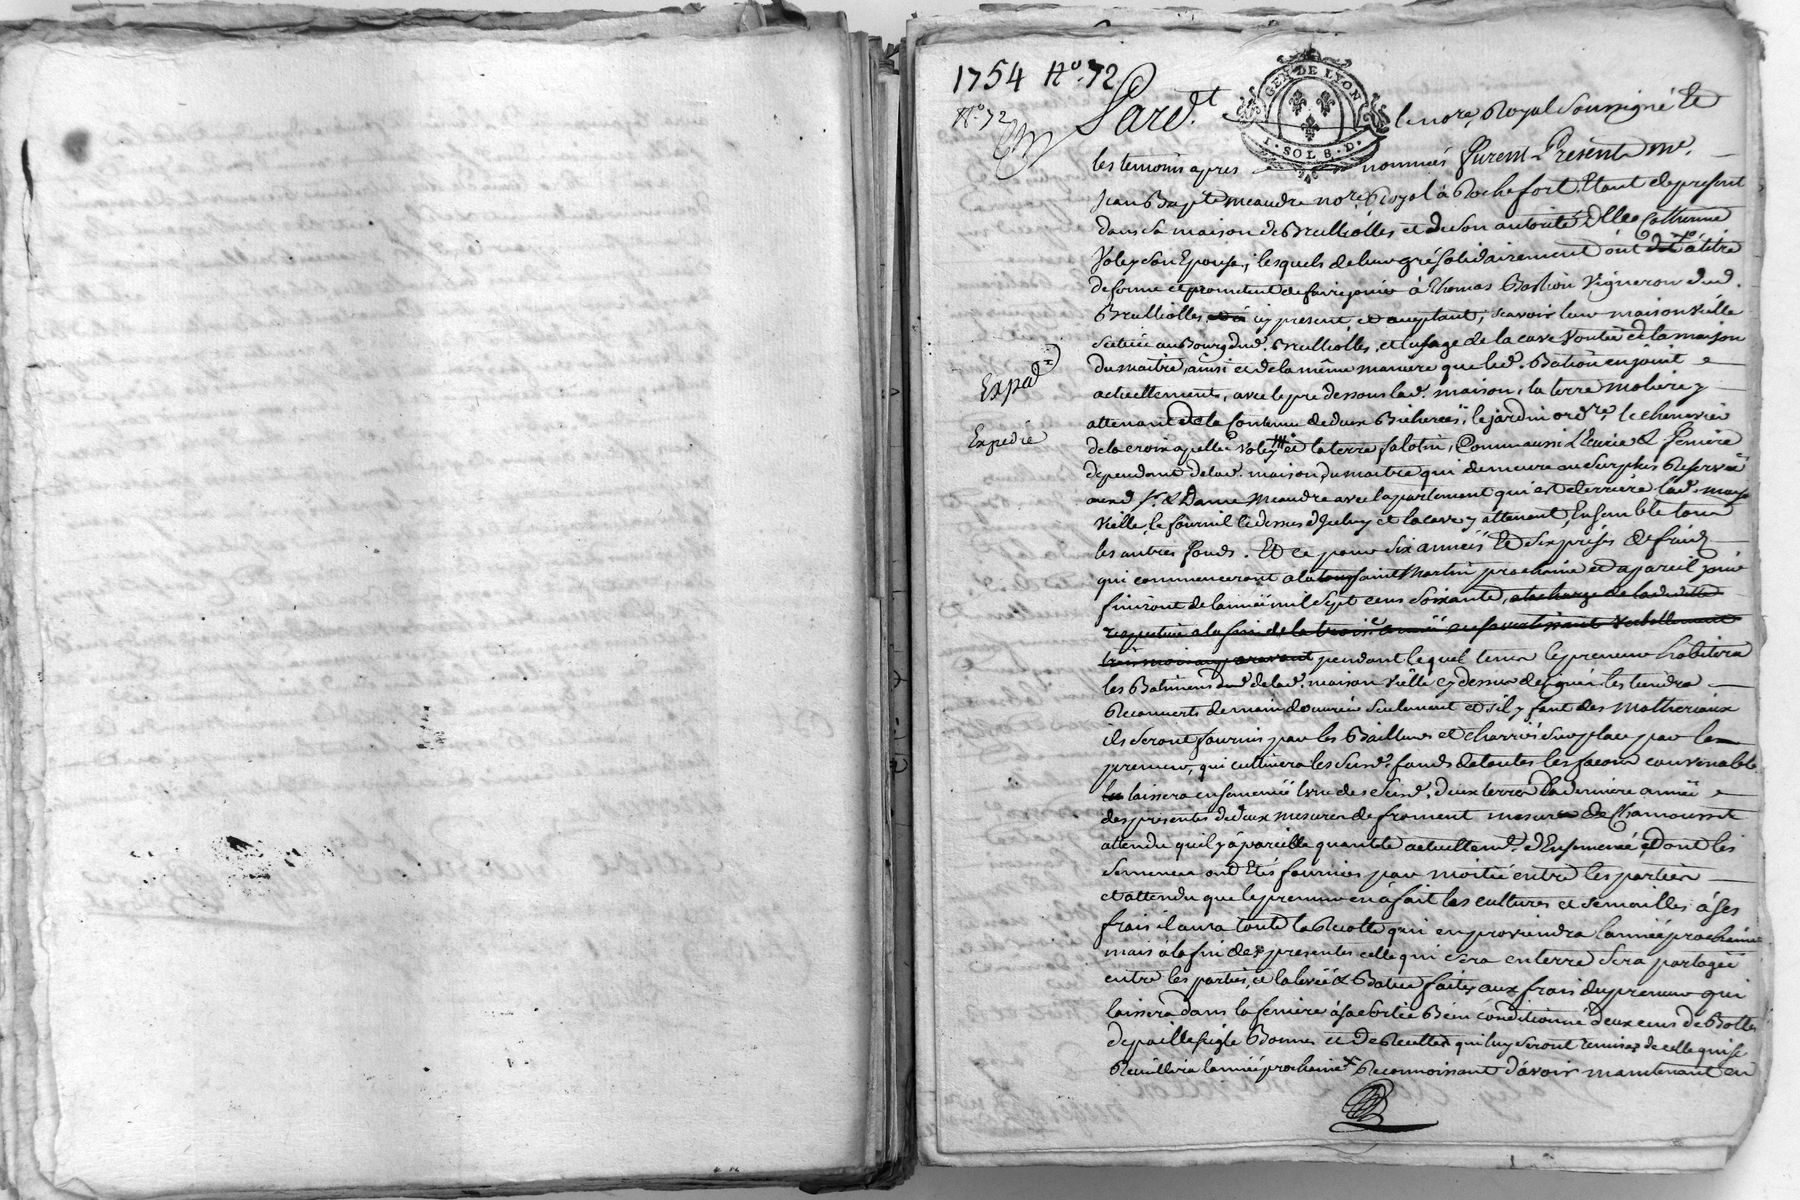 1754 No. 72
No. 72
GEN DE LYON
1. SOL 8. D.
Pard.t le no.re Royal soussigné Et
les temoins apres nommés furent Présents me.
Jean Bapt.te meaudre no.re Royal à Rochefort Etant de present
dans sa maison de Brulliolles et de son autorité Dlle Catherine
Voley son Epouse, lesquels de leur gré solidairement ont à titre
de ferme et promettent de faire jouir à Thomas Bastion Vigneron dud.
Brulliolles cy present et acceptant, scavoir leur maison vieille
Scituée au Bourg dud. Brulliolles, et l'usage de la cave voutée de la maison
du maitre, ainsi et de la même maniere que led. Bastion en jouit
actuellement, avec le pre dessous lad. maison, la terre molière y
attenant de la contenue de deux Bicherées, le jardin le chenevier
de la croix appellé Voley et la terre salotin, Comm aussi l'Ecurie & feniere
dependant de lad. maison du maitre qui demeure au surplus Reservée
aud. Sr. & Dame Meaudre avec l'apartement qui est derriere lad. maison
vielle, le fournil le dessus d'jceluy et la cave y attenant, Ensemble tous
les autres fonds. Et ce pour six années Et six prises de fruits
qui commenceront a la saint Martin prochaine et a pareil jour
finiront de l'année mil sept cens soixante, a la charge de
a la fin de la troise. année en s'avertissant verbellement
trois mois auparavant pendant lequel tems le preneur habitera
les Batimens de lad. maison vielle cy dessus designés les tiendra
Recouverts de main d'ouvrier seulement et s'il y faut des matheriaux
ils seront fournis par les Bailleurs et charriés sur place par le
preneur, qui cultivera les susd. fonds de toutes les facons convenables
laissera ensemencé l'une des susd. deux terres la derniere année
des presentes de deux mesures de froment mesure de Chamousset
attendu qu'il y à pareille quantité actuellem.t d'Ensemencé, dont les
semences ont Etés fournies par moitié entre les parties
et attendu que le preneur en à fait les cultures et semailles à ses
frais il aura toute la Recolte qui en proviendra l'année prochaine
mais à la fin des presentes celle qui sera en terre sera partagée
entre les parties, et la levée & Battue faites aux frais du preneur qui
laissera dans la feniere à sa sortie Bien conditionné deux cens de Bottes
de paille seigle Bonnes et de Recettes qui luy seront remises de celle qui se
Recuillira l'année prochaine Reconnoissant d'avoir maintenant en
Expad
Expedie